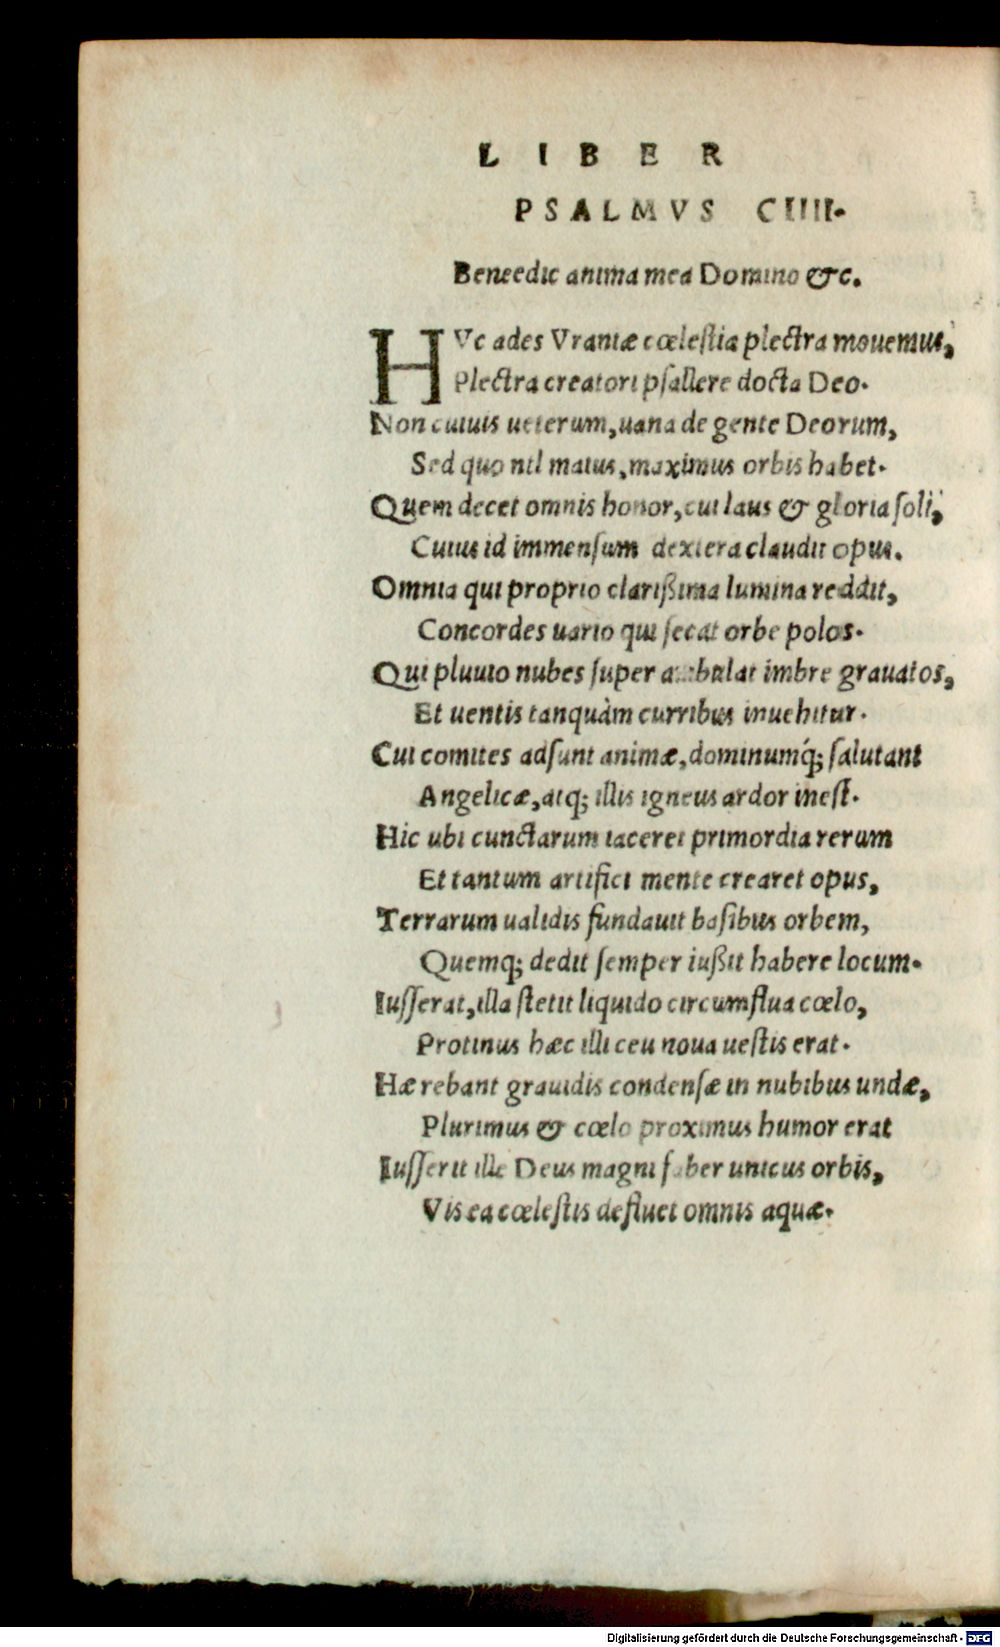 LIBER
PSALMVS CIIII.
Beneedic anima mea Domino &c.
HVc ades Vraniæ cœleſtia plectra mouemus,
Plectra creatori pſallere docta Deo.
Non cuiuis ueterum, uana de gente Deorum,
Sed quo nil maius, maximus orbis habet.
Quem decet omnis honor, cui laus & gloria ſoli,
Cuius id immenſum dextera claudit opus.
Omnia qui proprio clarißima lumina reddit,
Concordes uario qui ſecat orbe polos.
Qui pluuio nubes ſuper ambulat imbre grauatos,
Et uentis tanquàm curribus inuehitur.
Cui comites adſunt animæ, dominumq́; ſalutant
Angelicæ, atq; illis igneus ardor ineſt.
Hic ubi cunctarum iaceret primordia rerum
Et tantum artifici mente crearet opus,
Terrarum ualidis fundauit baſibus orbem,
Quemq; dedit ſemper iußit habere locum.
Iuſſerat, illa ſtetit liquido circumflua cœlo,
Protinus hæc illi ceu noua ueſtis erat.
Hærebant grauidis condenſæ in nubibus undæ,
Plurimus & cœlo proximus humor erat
Iuſſerit ille Deus magni faber unicus orbis,
Vis ea cœleſtis defluet omnis aquæ.
Digitalisierung gefördert durch die Deutsche Forschungsgemeinschaft - DFG